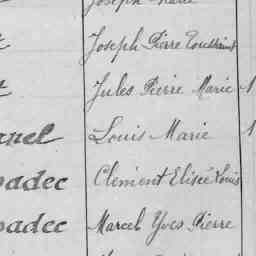 Joseph Marie
Joseph Pierre Toussaint
Jules Pierre Marie 1
anel Louis Marie 1
badec Clément Elisée Louis
badec Marcel Yves Pierre